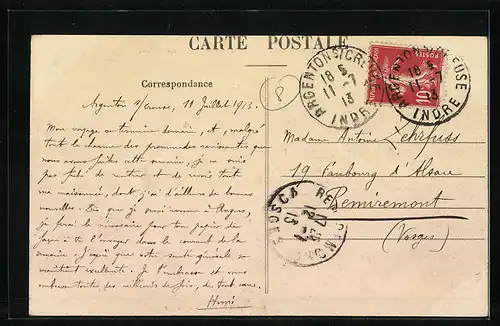 CARTE POSTALE
Correspondance
Argenton s/Creuse, 11 Juillet 1913.
Mon voyage se termine demain, et, malgré
tout le charme des promenades ravissantes que
nous avons faites cette semaine, je ne suis
pas fâché de rentrer et de revoir tout
ma maisonnée, dont j'ai d'ailleurs de bonnes
nouvelles. Dès que j'
ferai le nécessaire pour ton papier de
façon à te l'envoyer dans le courant de la
semaine. J'espère que votre santé générale se
maintient excellente. Je t'embrasse et vous
embrasse toutes des milliers de fois, de tout cœur.
Henri
P
ARGENTON S/CREUSE
18 5
11 -7
13
INDRE
POSTES
10
ARGENTON S/CREUSE
18 5
11 -7
13
INDRE
Madame Antoine Zehrfuss
19 Faubourg d'Alsace
Remiremont
(Vosges)
REMIREMONT
VOSGES